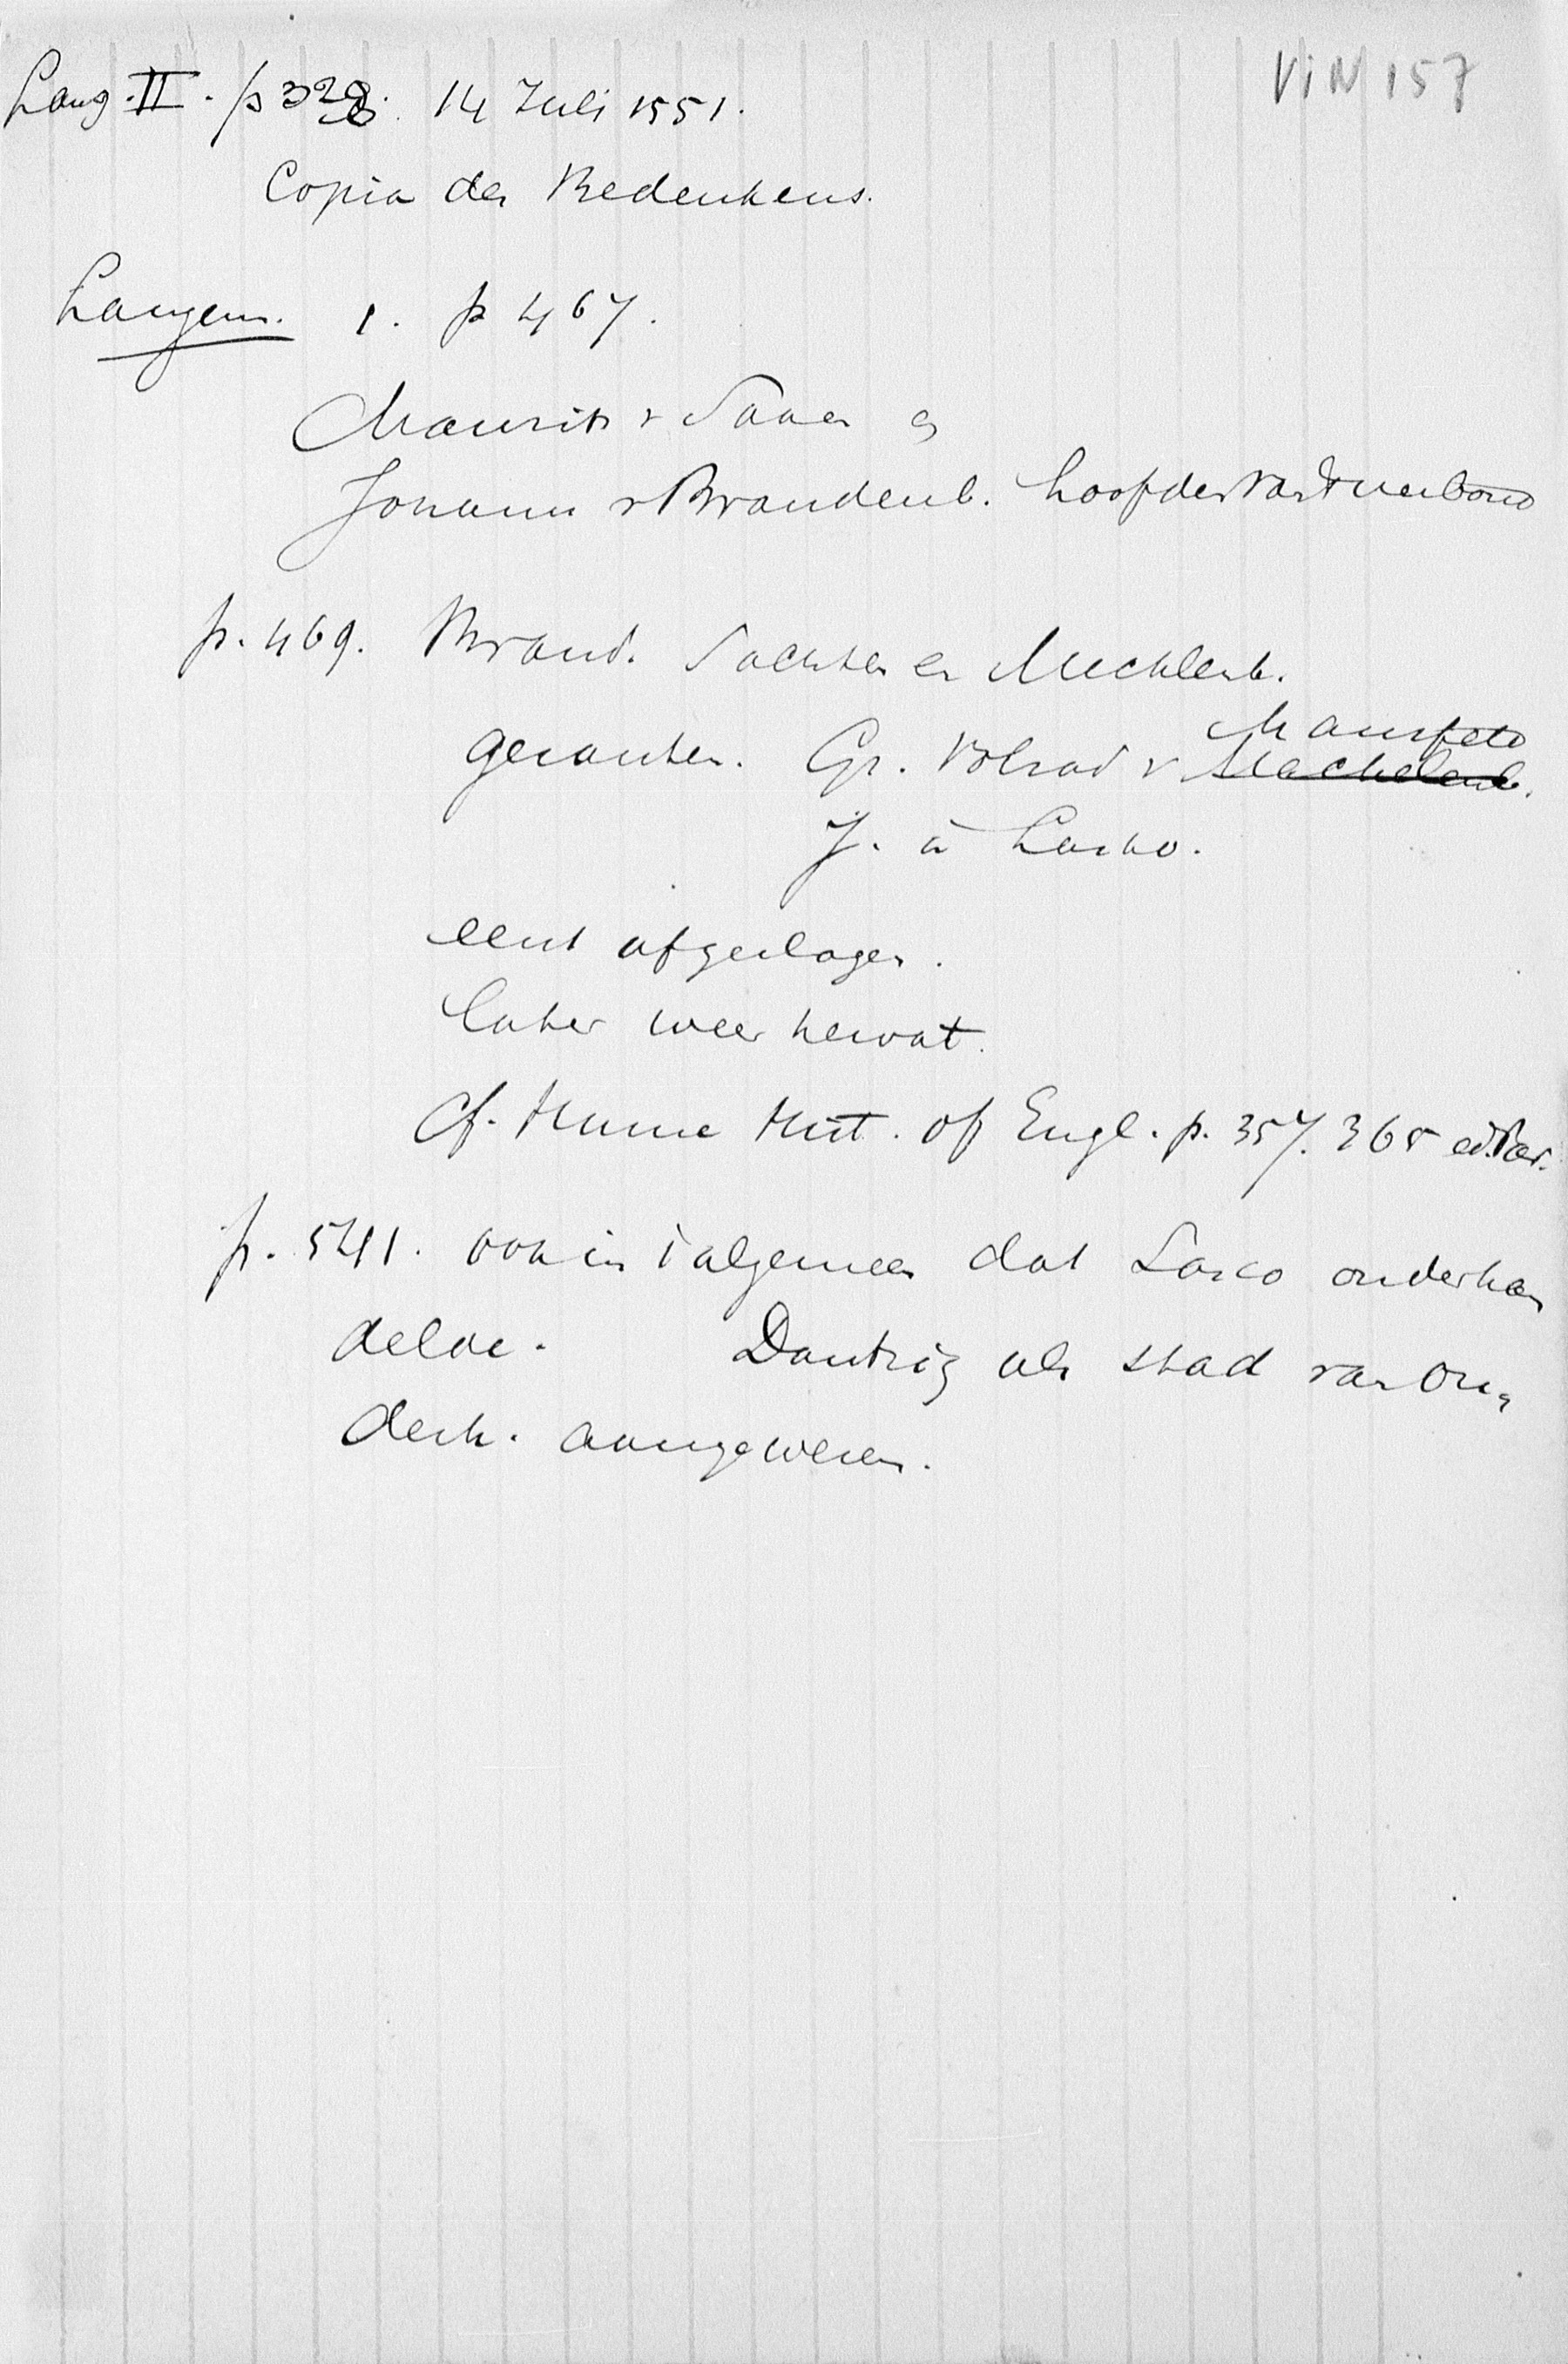 VIN 157
Lang. II. p 328. 14 Juli 1551.
Copia des Bedenkens.
Langenn. 1. p 467.
Maurits v Saxen en
Johann v Brandenb. hoofden van 't verbond
p. 469. Brand. Sachsen en Mechlenb.
gezanten. Gr. Volrad v Mansfeld
Mechelenb.
J. à Lasko.
eerst afgeslagen.
later weer hervat.
Cf. Hume Hist. of Engl. p. 357. 368 ed. Par.
p. 541. ook in 't algemeen dat Lasco onderhan
delde. Dantzig als stad van on„
derh. aangewezen.